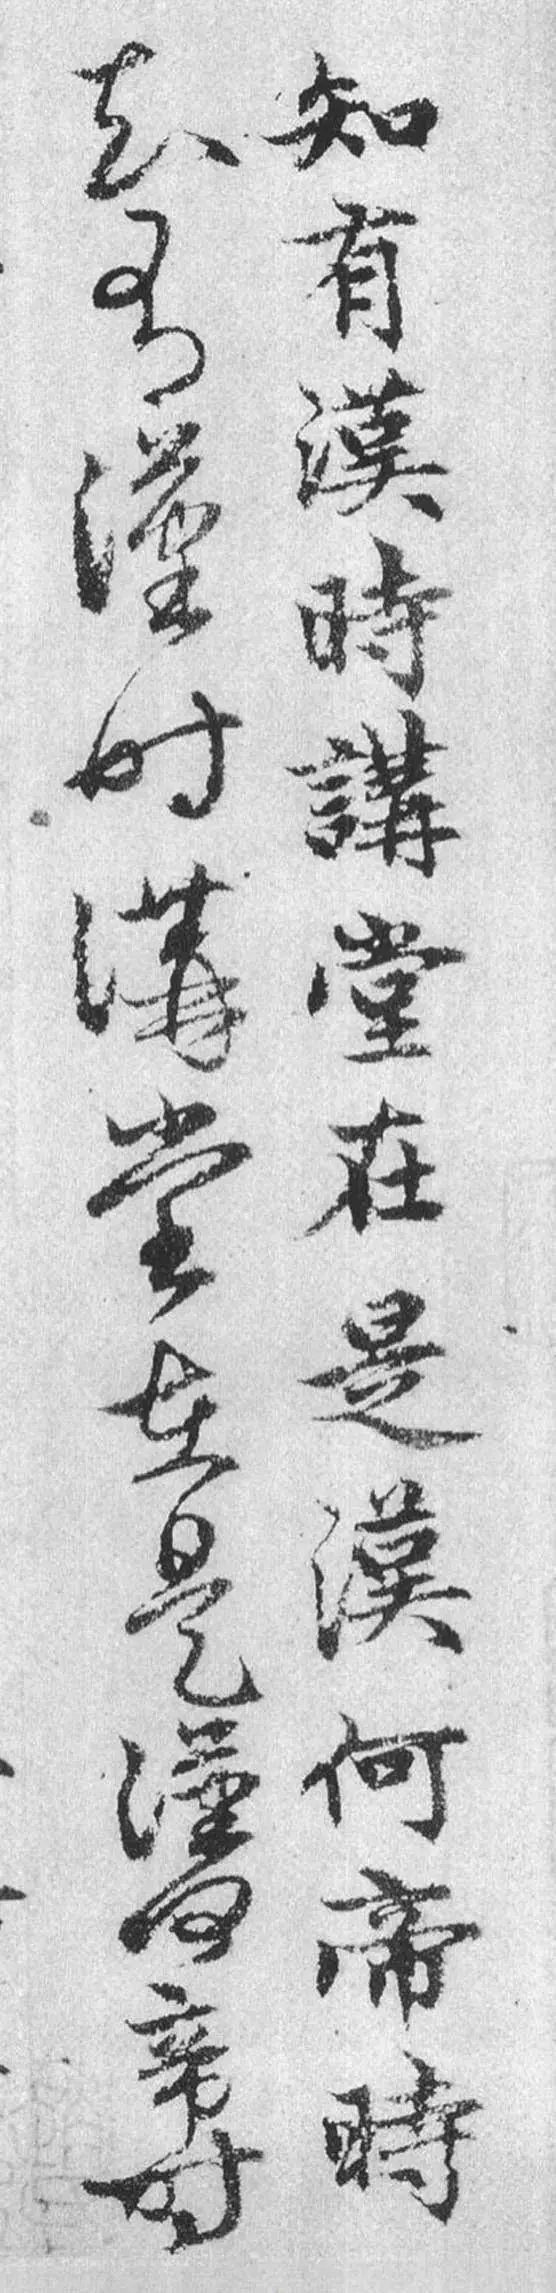 知有漢時講堂在是漢何帝時
知有漢時講堂在是漢何帝時